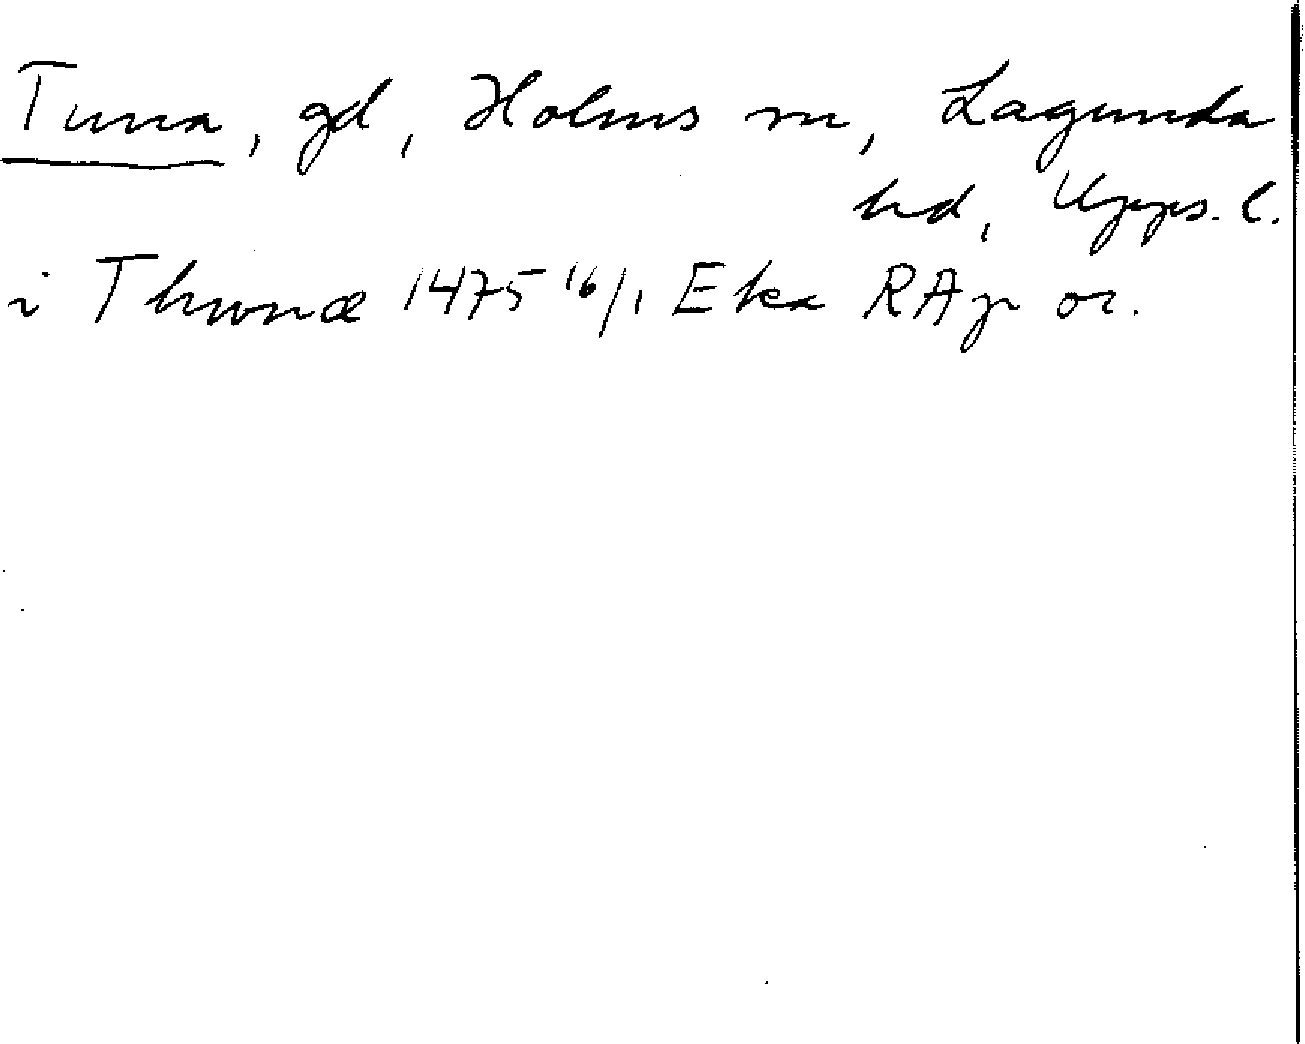 Tuna, gd, Holms sn, Lagunda
hd, Upps. l.
i Thwnæ 1475 16/1 Eka RAp or.